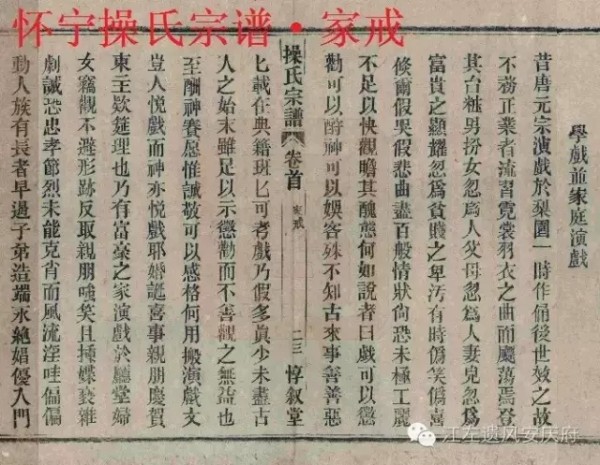 怀宁操氏宗谱·家戒
學戲並家庭演戲
昔唐元宗演戲於梨園一時作俑後世效之故
不務正業者流習霓裳羽衣之曲而飄蕩焉登
其台粧男扮女忽爲人父母忽爲人妻兒忽爲
富貴之顯耀忽爲貧賤之卑汚有時僞笑僞喜
倏爾假哭假悲曲盡百般情狀尚恐未極工麗
不足以快觀瞻其醜態何如說者曰戲可以懲
勸可以酧神可以娛客殊不知古來事善善惡
操氏宗譜
卷首
家戒
二三
惇叙堂
匕載在典籍班匕可考戲乃假多眞少未盡古
人之始末雖足以示懲勸而不善觀之無益也
至酧神賽愿惟誠敬可以感格何用搬演戲文
豈人悅戲而神亦悅戲耶婚誕喜事親朋慶賀
東主欵筵理也乃有富豪之家演戲於廳堂婦
女竊觀不避形跡反取親朋嗤矣且揀蝶褻雜
劇誠恐忠孝節烈未能克肖而風流淫哇偏偏
動人族有長者早過子弟造端永絕娼優入門
江左遗风安庆府